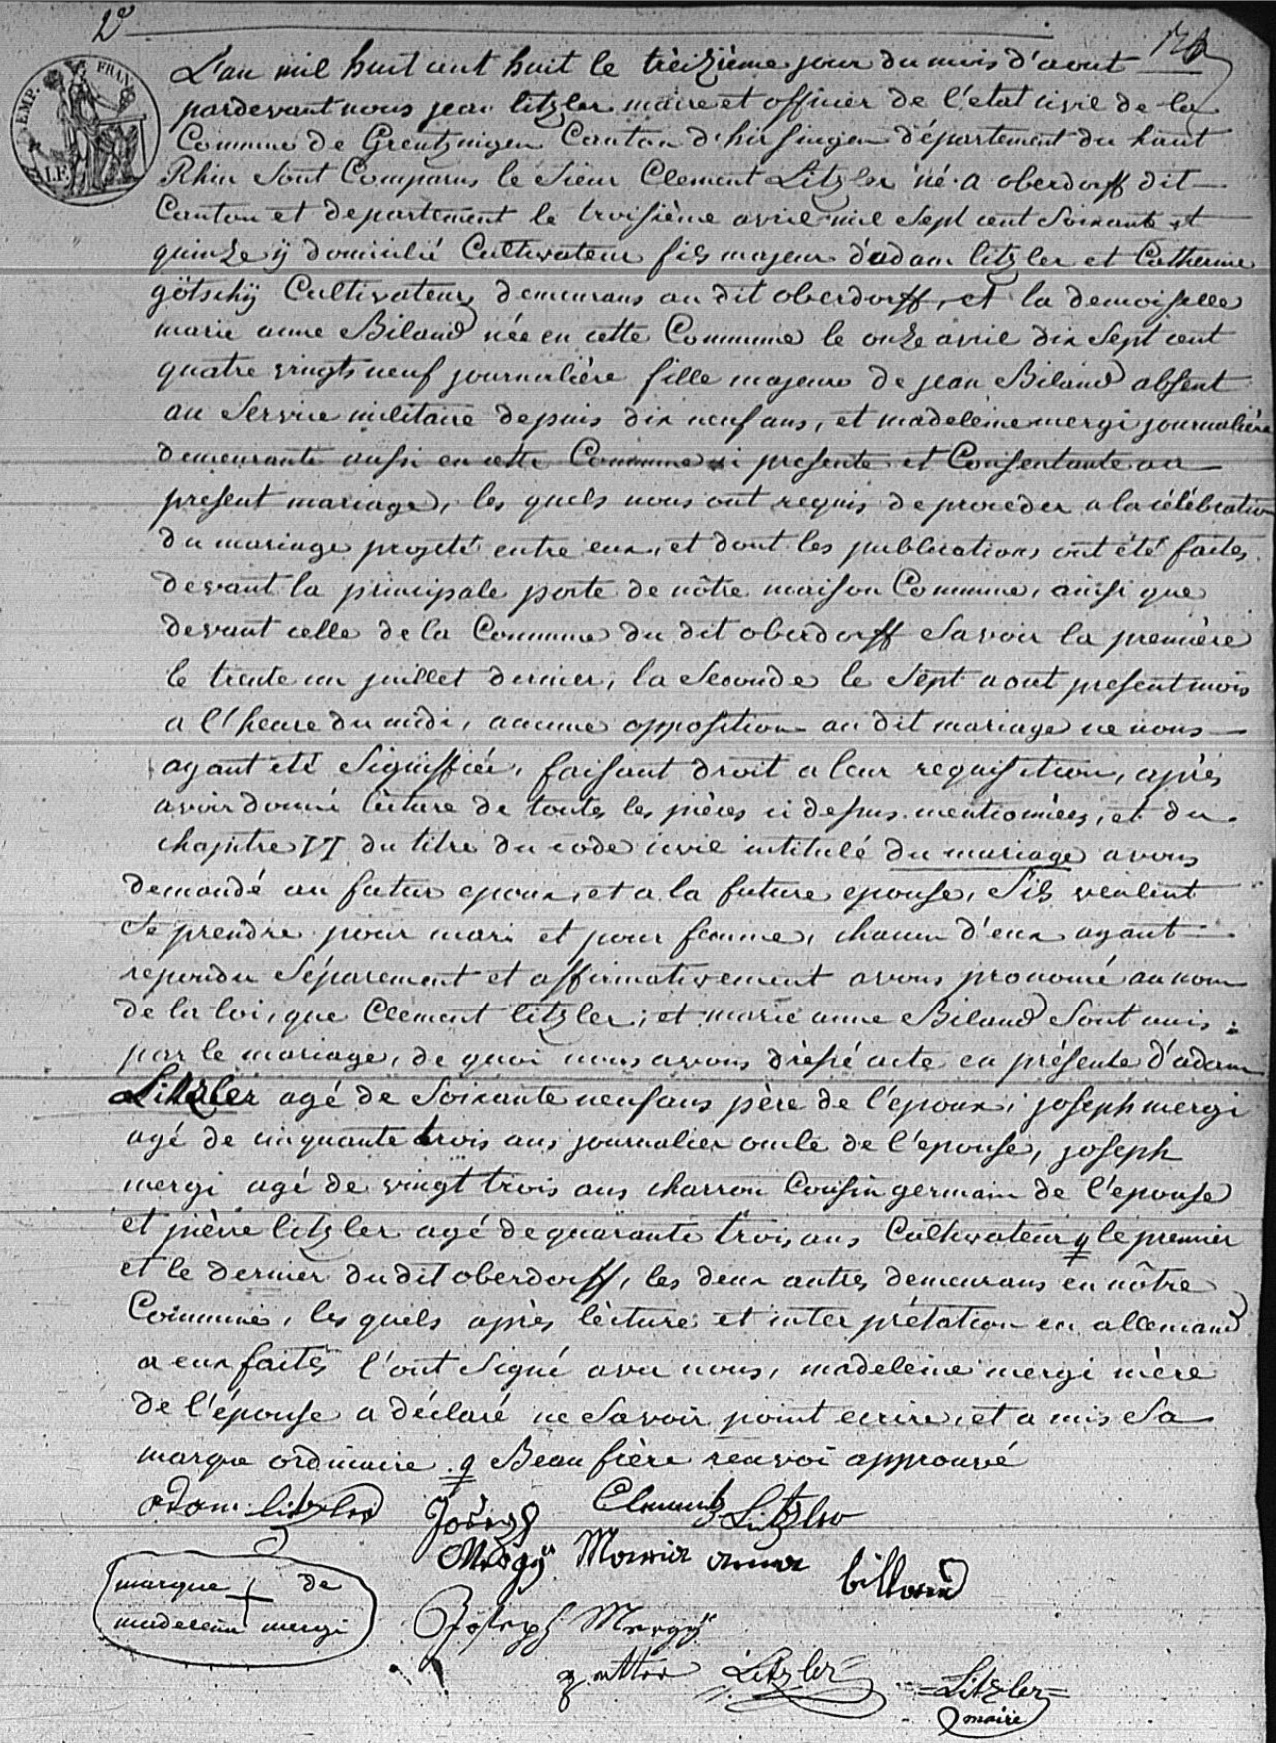 2e
EMP. FRAN.
L'an mil huit cent huit le treizième jour du mois d'aout
pardevant nous jean litzler maire et officier de l'etat civil de la
Commune de Grentzingen Canton d'hirsingen département du haut
Rhin Sont Comparus le Sieur Clement Litzler né a oberdorff dit
Canton et departement le troisième avril mil Sept cent Soixante et
quinze ÿ domicilié Cultivateur fils majeur d'adam litzler et Catherine
götschÿ Cultivateurs demeurans au dit oberdorff, et la demoiselle
marie anne Biland née en cette Commune le onze avril dix Sept cent
quatre vingts neuf journalière fille majeure de jean Biland absent
au Service militaire depuis dix neuf ans, et madeleine mergi journalière
demeurante aussi en cette Commune ci presente et Consentante au
present mariage, les quels nous ont requis de proceder a la célébration
du mariage projeté entre eux, et dont les publications ont été faites
devant la principale porte de nôtre maison Commune, ainsi que
devant celle de la Commune du dit oberdorff Savoir la première
le trente un juillet dernier, la Seconde le Sept aout present mois
a l'heure du midi, aucune opposition au dit mariage ne nous
ayant été Signiffiée, faisant droit a leur requisition, après
avoir donné lècture de toutes les pièces ci dessus mentionnées, et du
chapitre VI du titre du code civil intitulé du mariage avons
demandé au futur epoux, et a la future epouse, S'ils veulent
Se prendre pour mari et pour femme, chacun d'eux ayant
repondu Séparement et affirmativement avons prononcé au nom
de la loi, que Clement litzler, et marie anne Biland Sont unis
par le mariage, de quoi nous avons dréssé acte en présente d'adam
Litzler agé de Soixante neuf ans père de l'epoux, joseph mergi
agé de cinquante trois ans journalier oncle de l'epouse, joseph
mergi agé de vingt trois ans charron Cousin germain de l'epouse
et pièrre litzler agé de quarante trois ans Cultivateur q le premier
et le dernier du dit oberdorff, les deux autres demeurans en nôtre
Commune, les quels après lècture et interprétation en allemand
a eux faites l'ont Signé avec nous, madeleine mergi mère
de l'épouse a déclaré ne Savoir point ecrire, et a mis Sa
marque ordinaire. q Beau frère renvoi approuvé
adam litzler Joseph Clement Litzler
Mergÿ Marria anna billand
marque de
madeleine mergi
Joseph Mergÿ
Litzler Litzler
maire